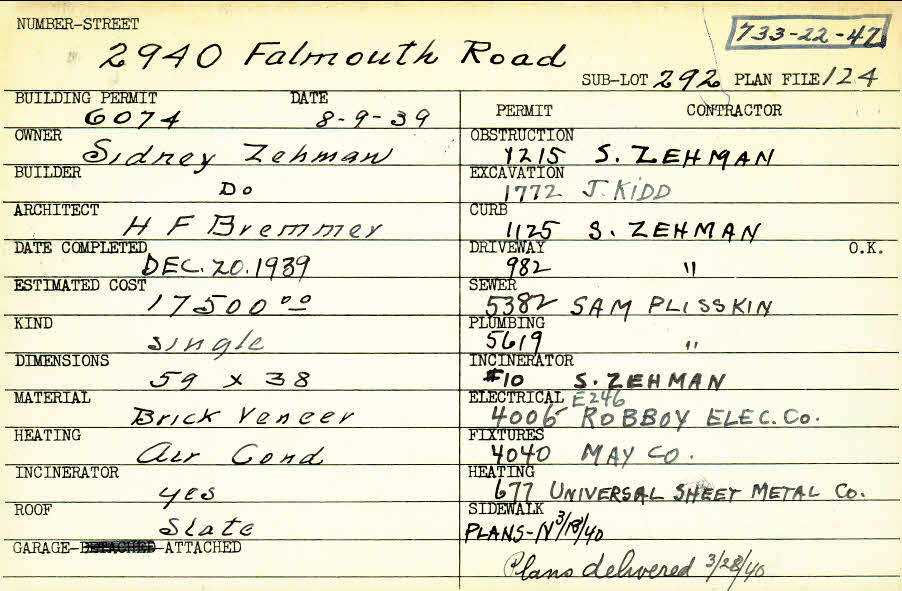 NUMBER-STREET
733-22-47
2940 Falmouth Road
SUB-LOT 292 PLAN FILE 124
BUILDING PERMIT DATE
6074 8-9-39
OWNER
Sidney Zehman
BUILDER
Do
ARCHITECT
H F Bremmer
DATE COMPLETED
DEC. 20. 1939
ESTIMATED COST
17500 00
KIND
single
DIMENSIONS
59 x 38
MATERIAL
Brick Veneer
HEATING
Air Cond
INCINERATOR
yes
ROOF
Slate
GARAGE-DETACHED-ATTACHED
PERMIT CONTRACTOR
OBSTRUCTION
1215 S. ZEHMAN
EXCAVATION
1772 J. KIDD
CURB
1125 S. ZEHMAN
DRIVEWAY O.K.
982 "
SEWER
5382 SAM PLISSKIN
PLUMBING
5619 "
INCINERATOR
#10 S. ZEHMAN
ELECTRICAL E246
4006 ROBBOY ELEC. Co.
FIXTURES
4040 MAY CO.
HEATING
677 UNIVERSAL SHEET METAL Co.
SIDEWALK
PLANS-N 3/18/40
Plans delivered 3/28/40